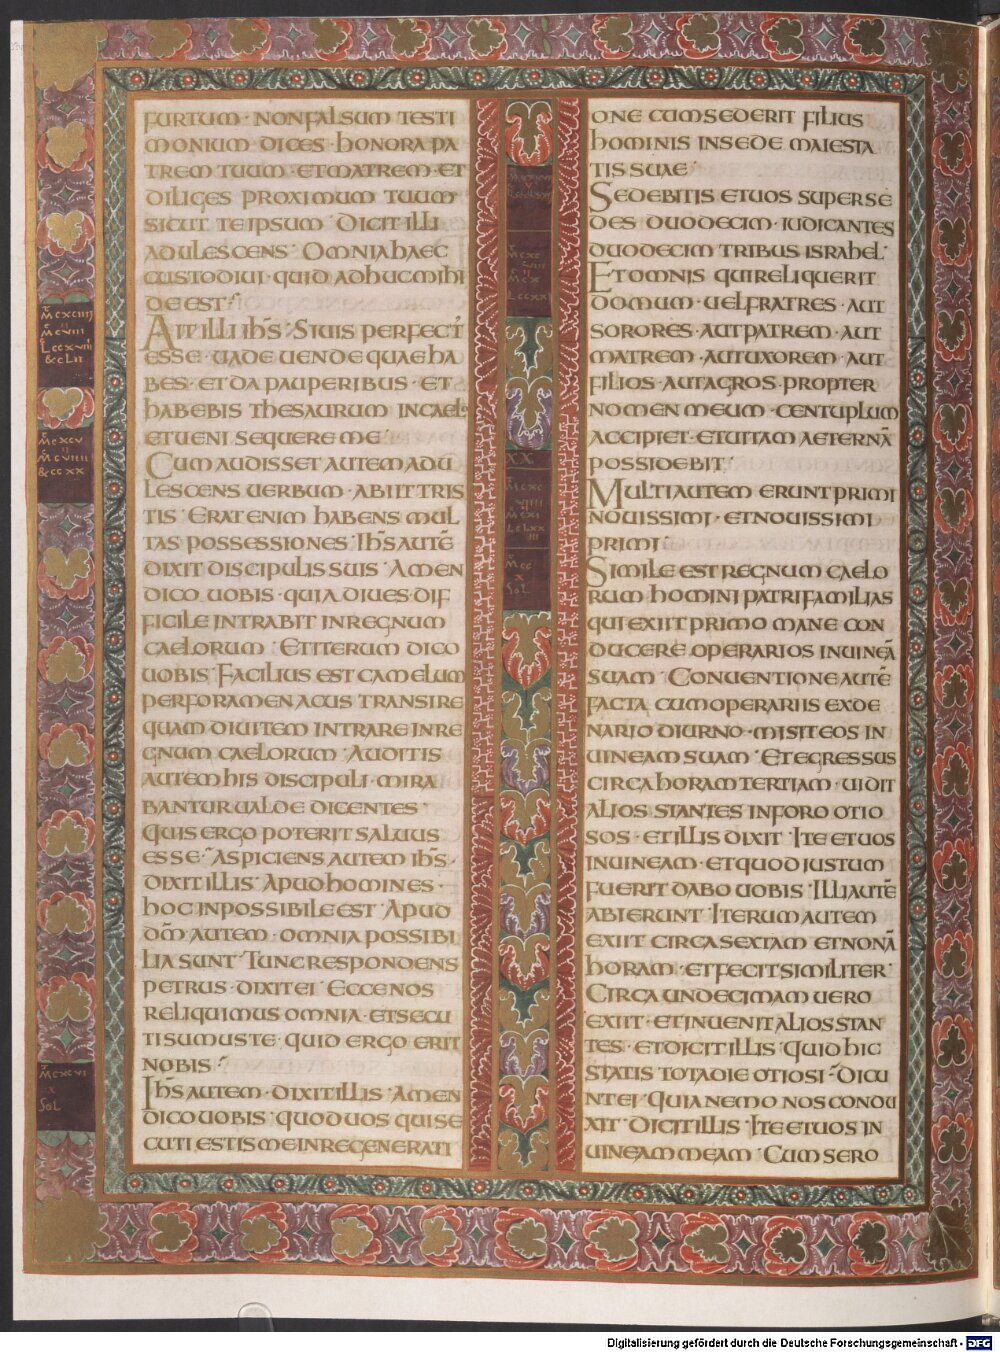 FURTUM · NON FALSUM TESTI
MONIUM · DICES · HONORA PA
TREM TUUM · ET MATREM · ET
DILIGES PROXIMUM TUUM
SICUT TE IPSUM · DICIT ILLI
ADULESCENS · OMNIA HAEC
CUSTODIUI · QUID ADHUC MIHI
DE EST ·
AIT ILLI IHS · SI UIS PERFECT
ESSE · UADE UENDE QUAE HA
BES · ET DA PAUPERIBUS · ET
HABEBIS THESAURUM IN CAEL
ET UENI SEQUERE ME ·
CUM AUDISSET AUTEM ADU
LESCENS UERBUM · ABIIT TRIS
TIS · ERAT ENIM HABENS MUL
TAS POSSESSIONES · IHS AUTĒ
DIXIT DISCIPULIS SUIS · AMEN
DICO UOBIS · QUIA DIUES DIF
FICILE INTRABIT IN REGNUM
CAELORUM · ET ITERUM DICO
UOBIS · FACILIUS EST CAMELUM
PER FORAMEN ACUS TRANSIRE
QUAM DIUITEM INTRARE IN RE
GNUM CAELORUM · AUDITIS
AUTEM HIS DISCIPULI · MIRA
BANTUR UALDE DICENTES ·
QUIS ERGO POTERIT SALUUS
ESSE · ASPICIENS AUTEM IHS ·
DIXIT ILLIS · APUD HOMINES ·
HOC INPOSSIBILE EST · APUD
DM̄ AUTEM · OMNIA POSSIBI
LIA SUNT · TUNC RESPONDENS
PETRUS · DIXIT EI · ECCE NOS
RELIQUIMUS OMNIA · ET SECU
TI SUMUS TE · QUID ERGO ERIT
NOBIS ·
IHS AUTEM · DIXIT ILLIS · AMEN
DICO UOBIS · QUOD UOS QUI SE
CUTI ESTIS ME IN REGENERATI
ONE CUM SEDERIT FILIUS
HOMINIS IN SEDE MAIESTA
TIS SUAE ·
SEDEBITIS ET UOS SUPER SE
DES DUODECIM · IUDICANTES
DUODECIM TRIBUS ISRAHEL ·
ET OMNIS QUI RELIQUERIT
DOMUM · UEL FRATRES · AUT
SORORES · AUT PATREM · AUT
MATREM · AUT UXOREM · AUT
FILIOS · AUT AGROS · PROPTER
NOMEN MEUM · CENTUPLUM
ACCIPIET · ET UITAM AETERNĀ
POSSIDEBIT ·
MULTI AUTEM ERUNT PRIMI
NOUISSIMI · ET NOUISSIMI
PRIMI ·
SIMILE EST REGNUM CAELO
RUM HOMINI PATRI FAMILIAS
QUI EXIIT PRIMO MANE CON
DUCERE OPERARIOS IN UINEĀ
SUAM · CONUENTIONE AUTĒ
FACTA CUM OPERARIIS EX DE
NARIO DIURNO · MISIT EOS IN
UINEAM SUAM · ET EGRESSUS
CIRCA HORAM TERTIAM · UIDIT
ALIOS STANTES IN FORO OTIO
SOS · ET ILLIS DIXIT · ITE ET UOS
IN UINEAM · ET QUOD IUSTUM
FUERIT DABO UOBIS · ILLI AUTĒ
ABIERUNT · ITERUM AUTEM
EXIIT CIRCA SEXTAM ET NONĀ
HORAM · ET FECIT SIMILITER ·
CIRCA UNDECIMAM UERO
EXIIT · ET INUENIT ALIOS STAN
TES · ET DICIT ILLIS · QUID HIC
STATIS TOTA DIE OTIOSI · DICU
NT EI · QUIA NEMO NOS CONDU
XIT · DICIT ILLIS · ITE ET UOS IN
UINEAM MEAM · CUM SERO
Digitalisierung gefördert durch die Deutsche Forschungsgemeinschaft - DFG